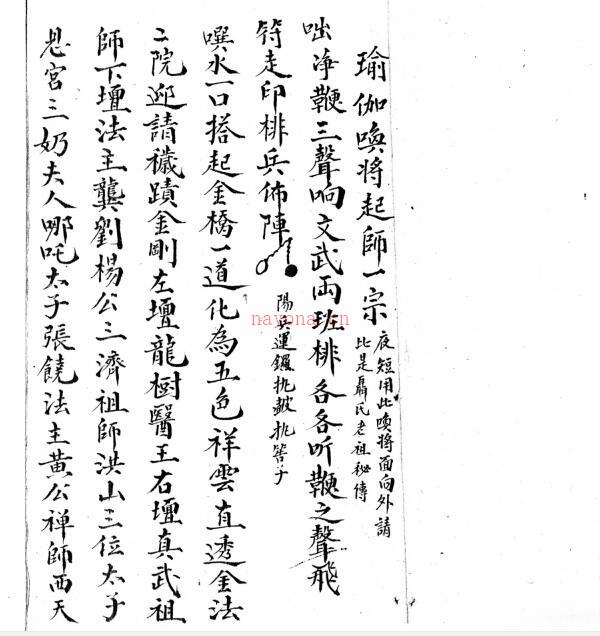 瑜伽喚将起師一宗
夜短用此喚将面向外請
此是聶氏老祖秘傳
咄净鞭三聲响文武両班排各各听鞭之聲飛
符走印排兵佈陣
陽兵運鑼扎鼓扎筶子
噀水一口搭起金橋一道化為五色祥雲直透金法
二院迎請穢蹟金剛左壇龍樹醫王右壇真武祖
師下壇法主龔劉楊公三濟祖師洪山三位太子
忌宮三奶夫人哪吒太子張饒法主黄公禅師西天
nayona.cn